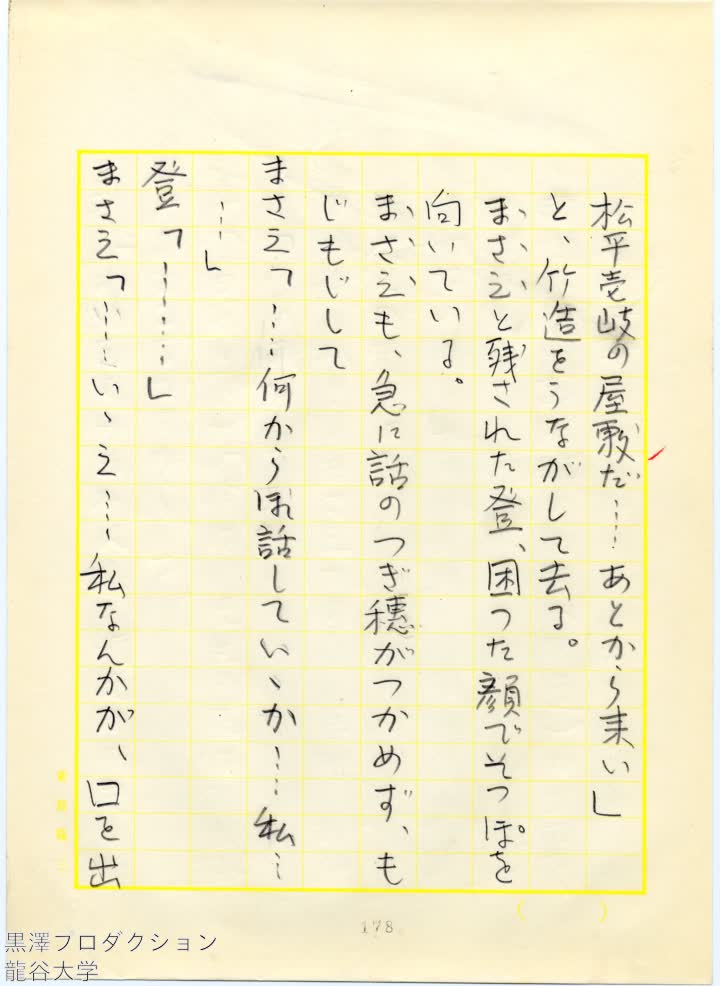 松平壱岐の屋敷だ……あとから来い」
と、竹造をうながして去る。
まさえと残された登、困った顔でそっぽを
向いている。
まさえも、急に話のつぎ穂がつかめず、も
じもじして
まさえ「……何からお話していゝか……私…
……」
登「…………」
まさえ「……いゝえ……私なんかが、口を出
178
黒澤プロダクション
龍谷大学